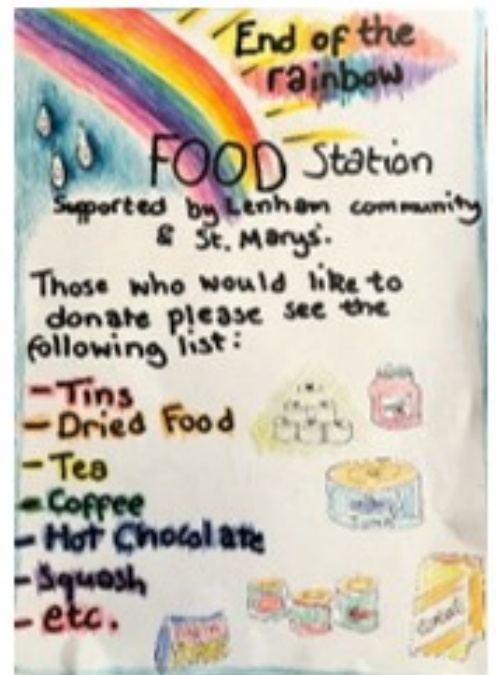 End of the
rainbow
FOOD Station
Supported by Lenham community
& St. Marys'.
Those who would like to
donate please see the
following list:
- Tins
- Dried Food
- Tea
- Coffee
- Hot Chocolate
- Squash
- etc.
CEREAL